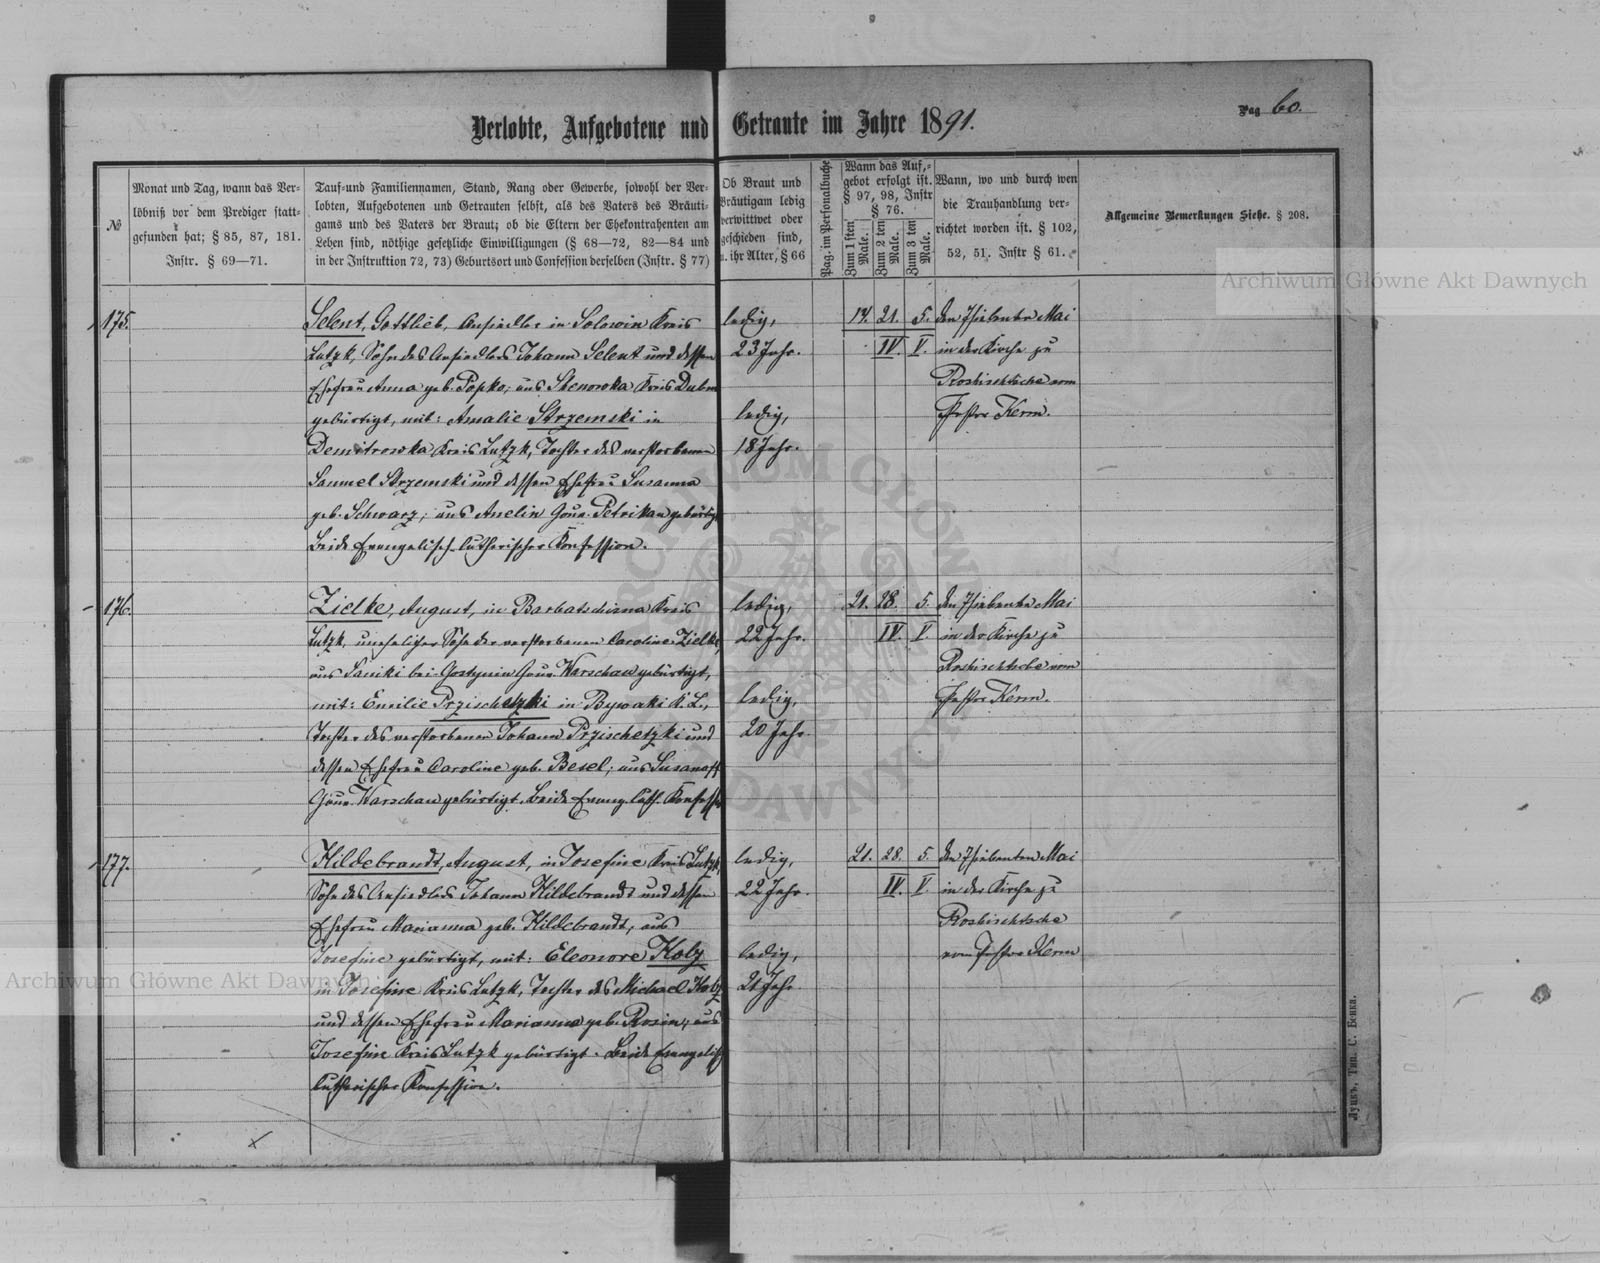 Verlobte, Aufgebotene und Getraute im Jahre 1891.
Pag 60.
№
Monat und Tag, wann das Ver-
löbniß vor dem Prediger statt-
gefunden hat; § 85, 87, 181.
Instr. § 69—71.
Tauf- und Familiennamen, Stand, Rang oder Gewerbe, sowohl der Ver-
lobten, Aufgebotenen und Getrauten selbst, als des Vaters des Bräuti-
gams und des Vaters der Braut; ob die Eltern der Ehekontrahenten am
Leben sind, nöthige gesetzliche Einwilligungen (§ 68—72, 82—84 und
in der Instruktion 72, 73) Geburtsort und Confession derselben (Instr. § 77)
Ob Braut und
Bräutigam ledig
verwittwet oder
geschieden sind,
u. ihr Alter, § 66
Pag. im Personalbuche
Wann das Auf-
gebot erfolgt ist.
§ 97, 98, Instr
§ 76.
Zum 1 sten Male.
Zum 2 ten Male.
Zum 3 ten Male.
Wann, wo und durch wen
die Trauhandlung ver-
richtet worden ist. § 102,
52, 51. Instr § 61.
Allgemeine Bemerkungen Siehe. § 208.
175.
Selent, Gottlieb, Ansiedler in Solowin Kreis
Lutzk, Sohn des Ansiedlers Johann Selent und dessen
Ehefrau Anna geb. Popko; aus Skenowka Kreis Dubno
gebürtigt, mit: Amalie Strzemski in
Demitrowka Kreis Lutzk, Tochter des verstorbenen
Samuel Strzemski und dessen Ehefrau Susanna
geb. Schwarz; aus Anelin Gouv. Petrikau gebürtig
Beide Evangelisch-lutherischer Konfession.
ledig,
23 Jahr.
ledig,
18 Jahr.
14. 21. 5.
IV. V.
den 7 siebenten Mai
in der Kirche zu
Roshischtsche vom
Pastor Kerm.
176.
Zielke, August, in Barbatschisna Kreis
Lutzk, unehelicher Sohn der verstorbenen Caroline Zielke,
aus Saniki bei Gostynin Gouv. Warschau gebürtigt,
mit: Emilie Przischetzki in Bywaki K. L.,
Tochter des verstorbenen Johann Przischetzki und
dessen Ehefrau Caroline geb. Besel; aus
Gouv. Warschau gebürtigt. Beide Evang. luth.
ledig,
22 Jahr.
ledig,
20 Jahr.
21. 28. 5.
IV. V.
den 7 siebenten Mai
in der Kirche zu
Roshischtsche vom
Pastor Kerm.
177.
Hildebrandt, August, in Josefine Kreis Lutzk,
Sohn des Ansiedlers Johann Hildebrandt und dessen
Ehefrau Marianna geb. Hildebrandt, aus
Josefine gebürtigt, mit: Eleonore Kolz
in Josefine Kreis Lutzk, Tochter des Michael Kolz
und dessen Ehefrau Marianna geb. Rosin; aus
Josefine Kreis Lutzk gebürtigt. Beide Evangelisch
lutherischer Konfession.
ledig,
22 Jahr.
ledig,
21 Jahr.
21. 28. 5.
IV. V.
den 7 siebenten Mai
in der Kirche zu
Roshischtsche
vom Pastor Kerm
Луцкъ, Тип. С. Бенка.
Archiwum Główne Akt Dawnych
Archiwum Główne Akt Dawnych
ARCHIWUM GŁÓWNE AKT DAWNYCH